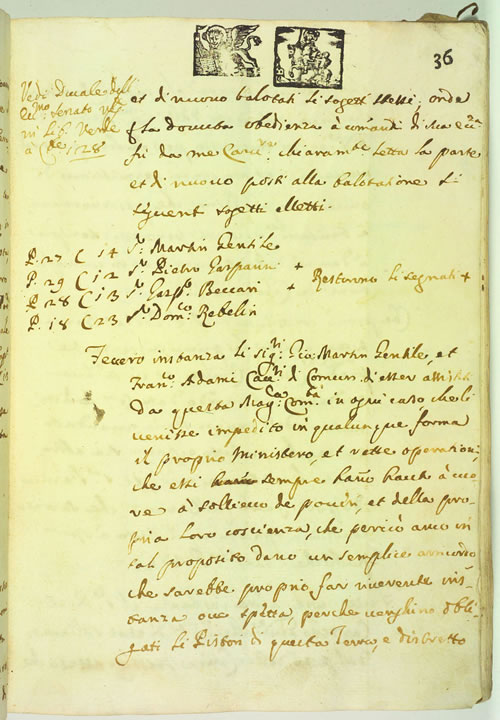 36
Vedi Ducale dell
Ecc.mo Senato
ni Lib. Verde
à C.te 128
et di nuouo balotati li sogetti stessi, onda
p la douuta obedienza à comandi di sua ecc.za
fù da me Canc.re chiaram.te letta la parte
et di nuouo posti alla balotatione li
seguenti sogetti elletti.
P. 27 C 14 S.r Martin Gentile
P. 29 C 12 S.r Pietro Gasparini +
P. 28 C 13 S.r Gasp.o Beccari + Restorno li segnati +
P. 18 C 23 S.r Dom.co Rebelin
Feccero instanza li sig.ri Gio: Martin Gentile, et
Fran.co Adami Cau.ri di Comun d'esser assistiti
da questa Mag.ca Com.tà in ogni caso che li
uenisse impedito in qualunque forma
il proprio ministero, et rette operationi,
che essi sempre hano hauto à cuo
re à sollieuo de poueri, et della pro
pria loro coscienza, che perciò anco in
tal proposito dano un semplice arricordo
che sarebbe proprio far riuerente ins
tanza oue spetta, perche uenghino obli
gati li Pistori di questa Terra, e distretto